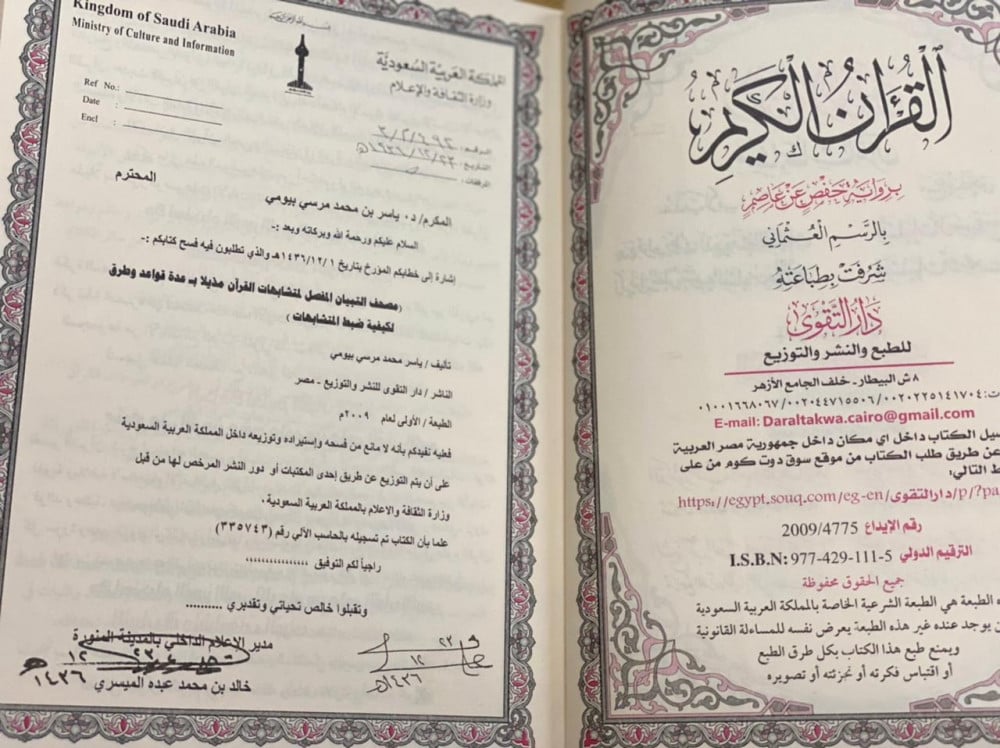 Kingdom of Saudi Arabia
Ministry of Culture and Information
Ref No.:
Date :
Encl :
المملكة العربية السعودية
وزارة الثقافة والإعلام
الرقم:
التاريخ: ١٤٣٦/١٢/٢٣هـ
المرفقات:
المكرم/ د. ياسر بن محمد مرسي بيومي المحترم
السلام عليكم ورحمة الله وبركاته وبعد :-
إشارة إلى خطابكم المؤرخ بتاريخ ١٤٣٦/١٢/١هـ والذي تطلبون فيه فسح كتابكم :-
(مصحف التبيان المفصل لمتشابهات القرآن مذيلا بـ عدة قواعد وطرق
لكيفية ضبط المتشابهات )
تأليف / ياسر محمد مرسي بيومي
الناشر / دار التقوى للنشر والتوزيع - مصر
الطبعة / الأولى لعام ٢٠٠٩م.
فعليه نفيدكم بأنه لا مانع من فسحه وإستيراده وتوزيعه داخل المملكة العربية السعودية
على أن يتم التوزيع عن طريق إحدى المكتبات أو دور النشر المرخص لها من قبل
وزارة الثقافة والاعلام بالمملكة العربية السعودية .
علما بأن الكتاب تم تسجيله بالحاسب الآلي رقم (٣٣٥٧٤٣)
راجياً لكم التوفيق ................
وتقبلوا خالص تحياتي وتقديري ..........
مدير الاعلام الداخلي بالمدينة المنورة
٢٣
١٢
١٤٣٦هـ
خالد بن محمد عبده الميسري
٢٣
١٢
١٤٣٦هـ
القرءان الكريم
برواية حفص عن عاصم
بالرسم العثماني
شرفت بطباعته
دار التقوى
للطبع والنشر والتوزيع
٨ ش البيطار - خلف الجامع الأزهر
ت: ٠٠٢٠٢٢٥١٤١٧٠٤/٠٠٢٠٤٤٧١٥٥٠٦/٠١٠٠١٦٦٨٠٦٧
E-mail: Daraltakwa.cairo@gmail.com
صيل الكتاب داخل اي مكان داخل جمهورية مصر العربية
عن طريق طلب الكتاب من موقع سوق دوت كوم من على
ط التالي:
https://egypt.souq.com/eg-en/دار التقوى/p/?pa
رقم الإيداع 2009/4775
الترقيم الدولي I.S.B.N: 977-429-111-5
جميع الحقوق محفوظة
ه الطبعة هي الطبعة الشرعية الخاصة بالمملكة العربية السعودية
ن يوجد عنده غير هذه الطبعة يعرض نفسه للمساءلة القانونية
ويمنع طبع هذا الكتاب بكل طرق الطبع
أو اقتباس فكرته أو تجزئته أو تصويره